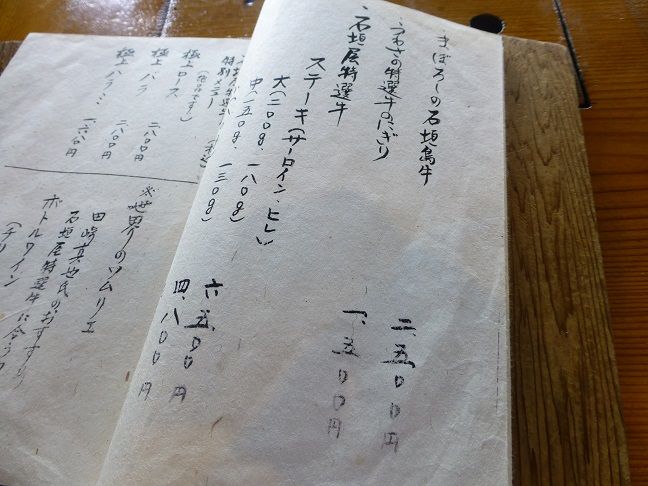 まぼろしの石垣島牛
・うわさの特選牛のにぎり 二、五〇〇円
・石垣屋特選牛 一、五〇〇円
ステーキ(サーロイン、ヒレ)
大(二〇〇g・一八〇g) 六、五〇〇円
中(一五〇g・一三〇g) 四、八〇〇円
特別メニュー
極上ロース 二八〇〇円
極上バラ 二八〇〇円
極上
※世界のソムリエ
田崎真也氏のおすすめ
石垣屋特選牛に合う
ボトルワイン
(チリ